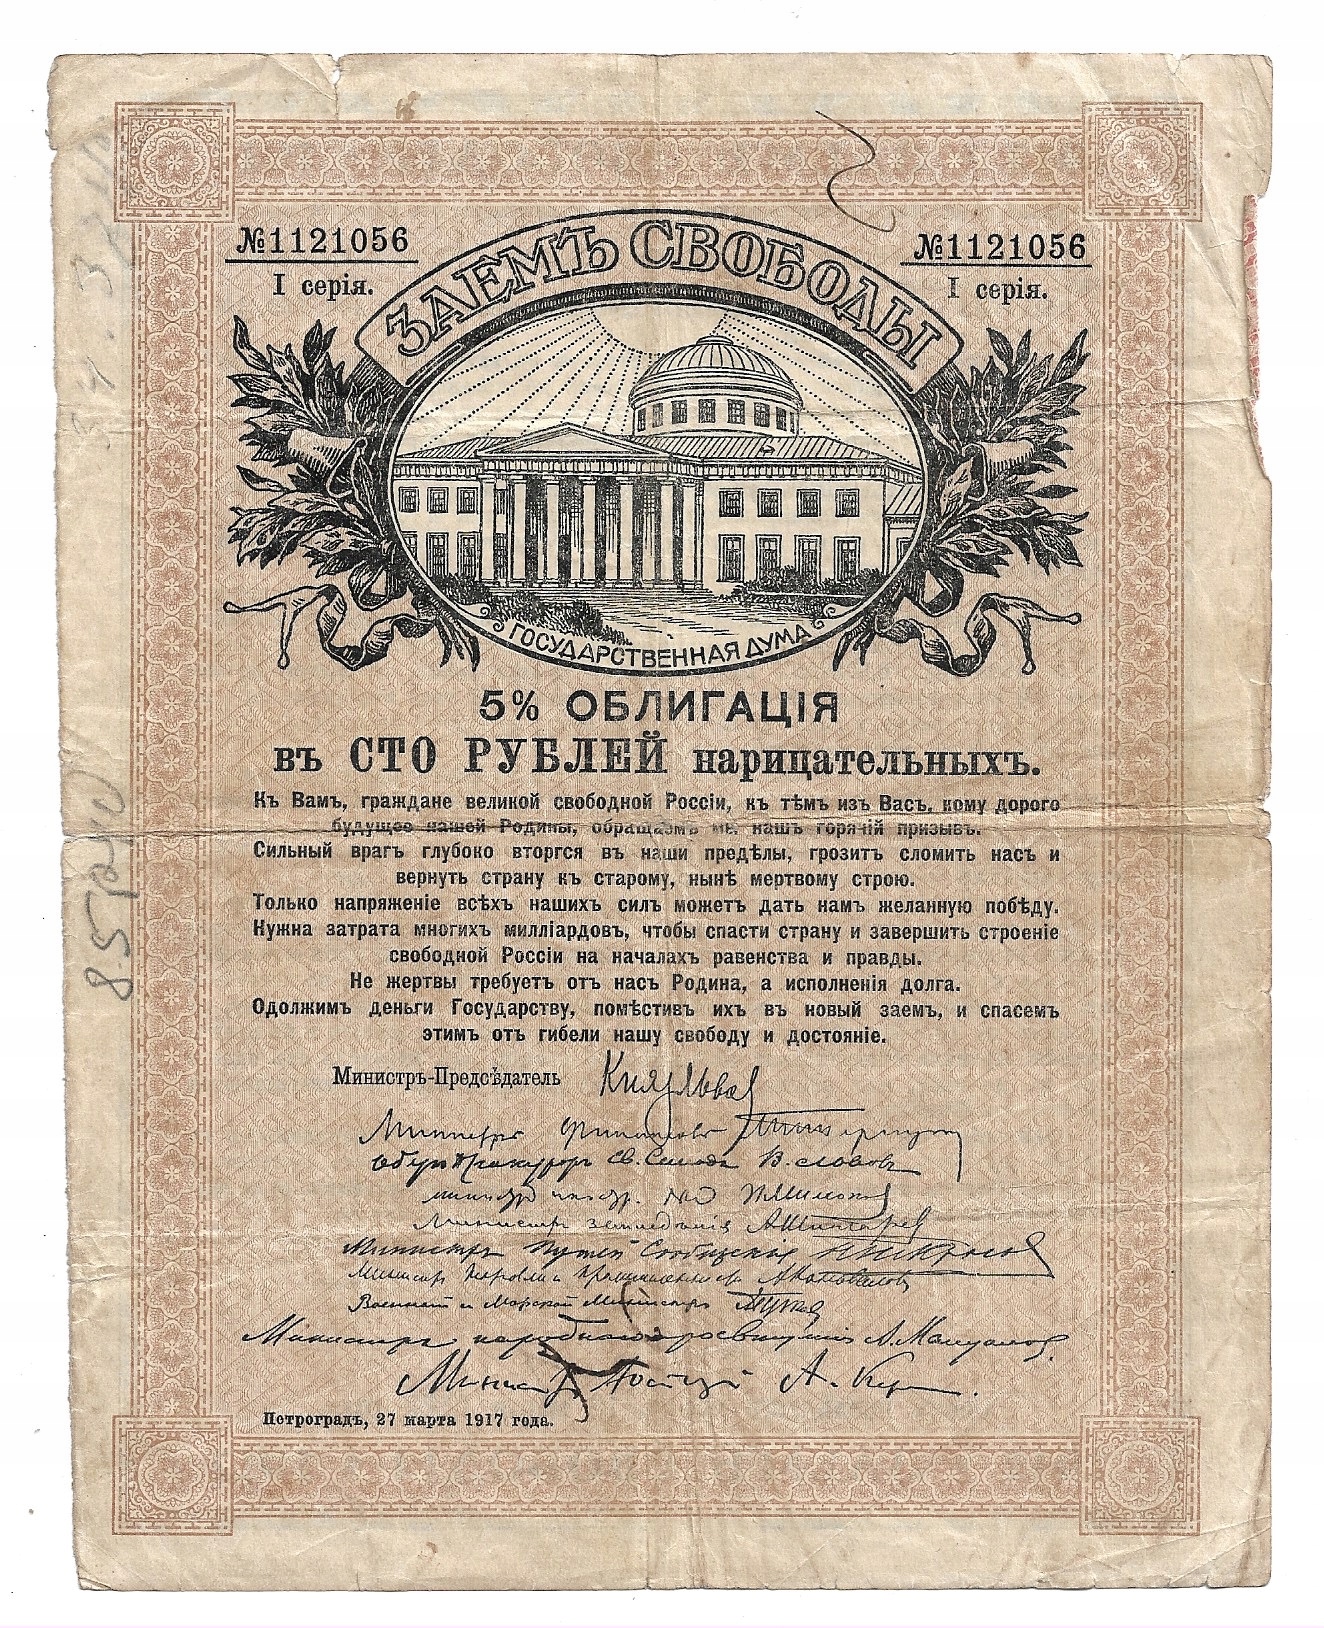 №1121056
№1121056
I серія.
I серія.
ЗАЕМЪ СВОБОДЫ
ГОСУДАРСТВЕННАЯ ДУМА
5% ОБЛИГАЦІЯ
въ СТО РУБЛЕЙ нарицательныхъ.
Къ Вамъ, граждане великой свободной Россіи, къ тѣмъ изъ Васъ, кому дорого
будущее нашей Родины, обращаемъ мы нашъ горячій призывъ.
Сильный врагъ глубоко вторгся въ наши предѣлы, грозитъ сломить насъ и
вернуть страну къ старому, нынѣ мертвому строю.
Только напряженіе всѣхъ нашихъ силъ можетъ дать намъ желанную побѣду.
Нужна затрата многихъ милліардовъ, чтобы спасти страну и завершить строеніе
свободной Россіи на началахъ равенства и правды.
Не жертвы требуетъ отъ насъ Родина, а исполненія долга.
Одолжимъ деньги Государству, помѣстивъ ихъ въ новый заемъ, и спасемъ
этимъ отъ гибели нашу свободу и достояніе.
Министръ-Предсѣдатель Князь Львов
Министръ финансовъ
Оберъ Прокуроръ Св. Синода В. Львовъ
Министръ
Министръ земледѣлія А Шингарев
Министръ Путей Сообщенія
Министръ Торговли и Промышленности А Коновалов
Военный и Морской Министръ
Министръ народнаго просвѣщенія А. Мануйлов.
Министръ Юстиціи А. Керенский
Петроградъ, 27 марта 1917 года.
85740